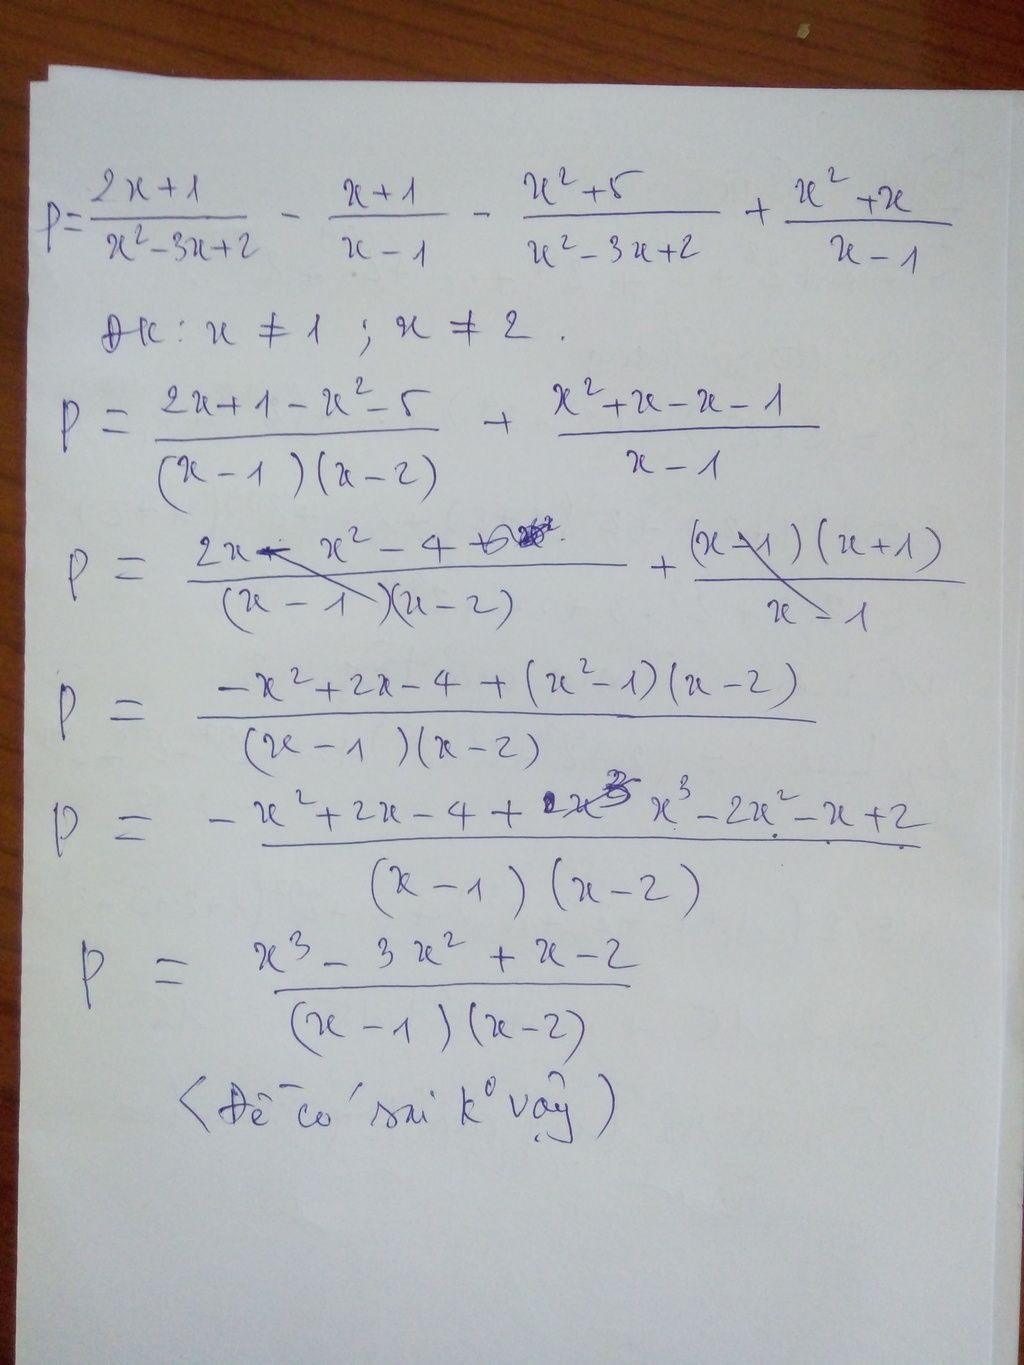 P = (2x+1)/(x²-3x+2) - (x+1)/(x-1) - (x²+5)/(x²-3x+2) + (x²+x)/(x-1)
ĐK: x ≠ 1 ; x ≠ 2 .
P = (2x+1-x²-5)/((x-1)(x-2)) + (x²+x-x-1)/(x-1)
P = (2x - x² - 4)/((x-1)(x-2)) + ((x-1)(x+1))/(x-1)
P = (-x²+2x-4+(x²-1)(x-2))/((x-1)(x-2))
P = (-x²+2x-4+ x³-2x²-x+2)/((x-1)(x-2))
P = (x³-3x²+x-2)/((x-1)(x-2))
(Đề có sai k° vậy)